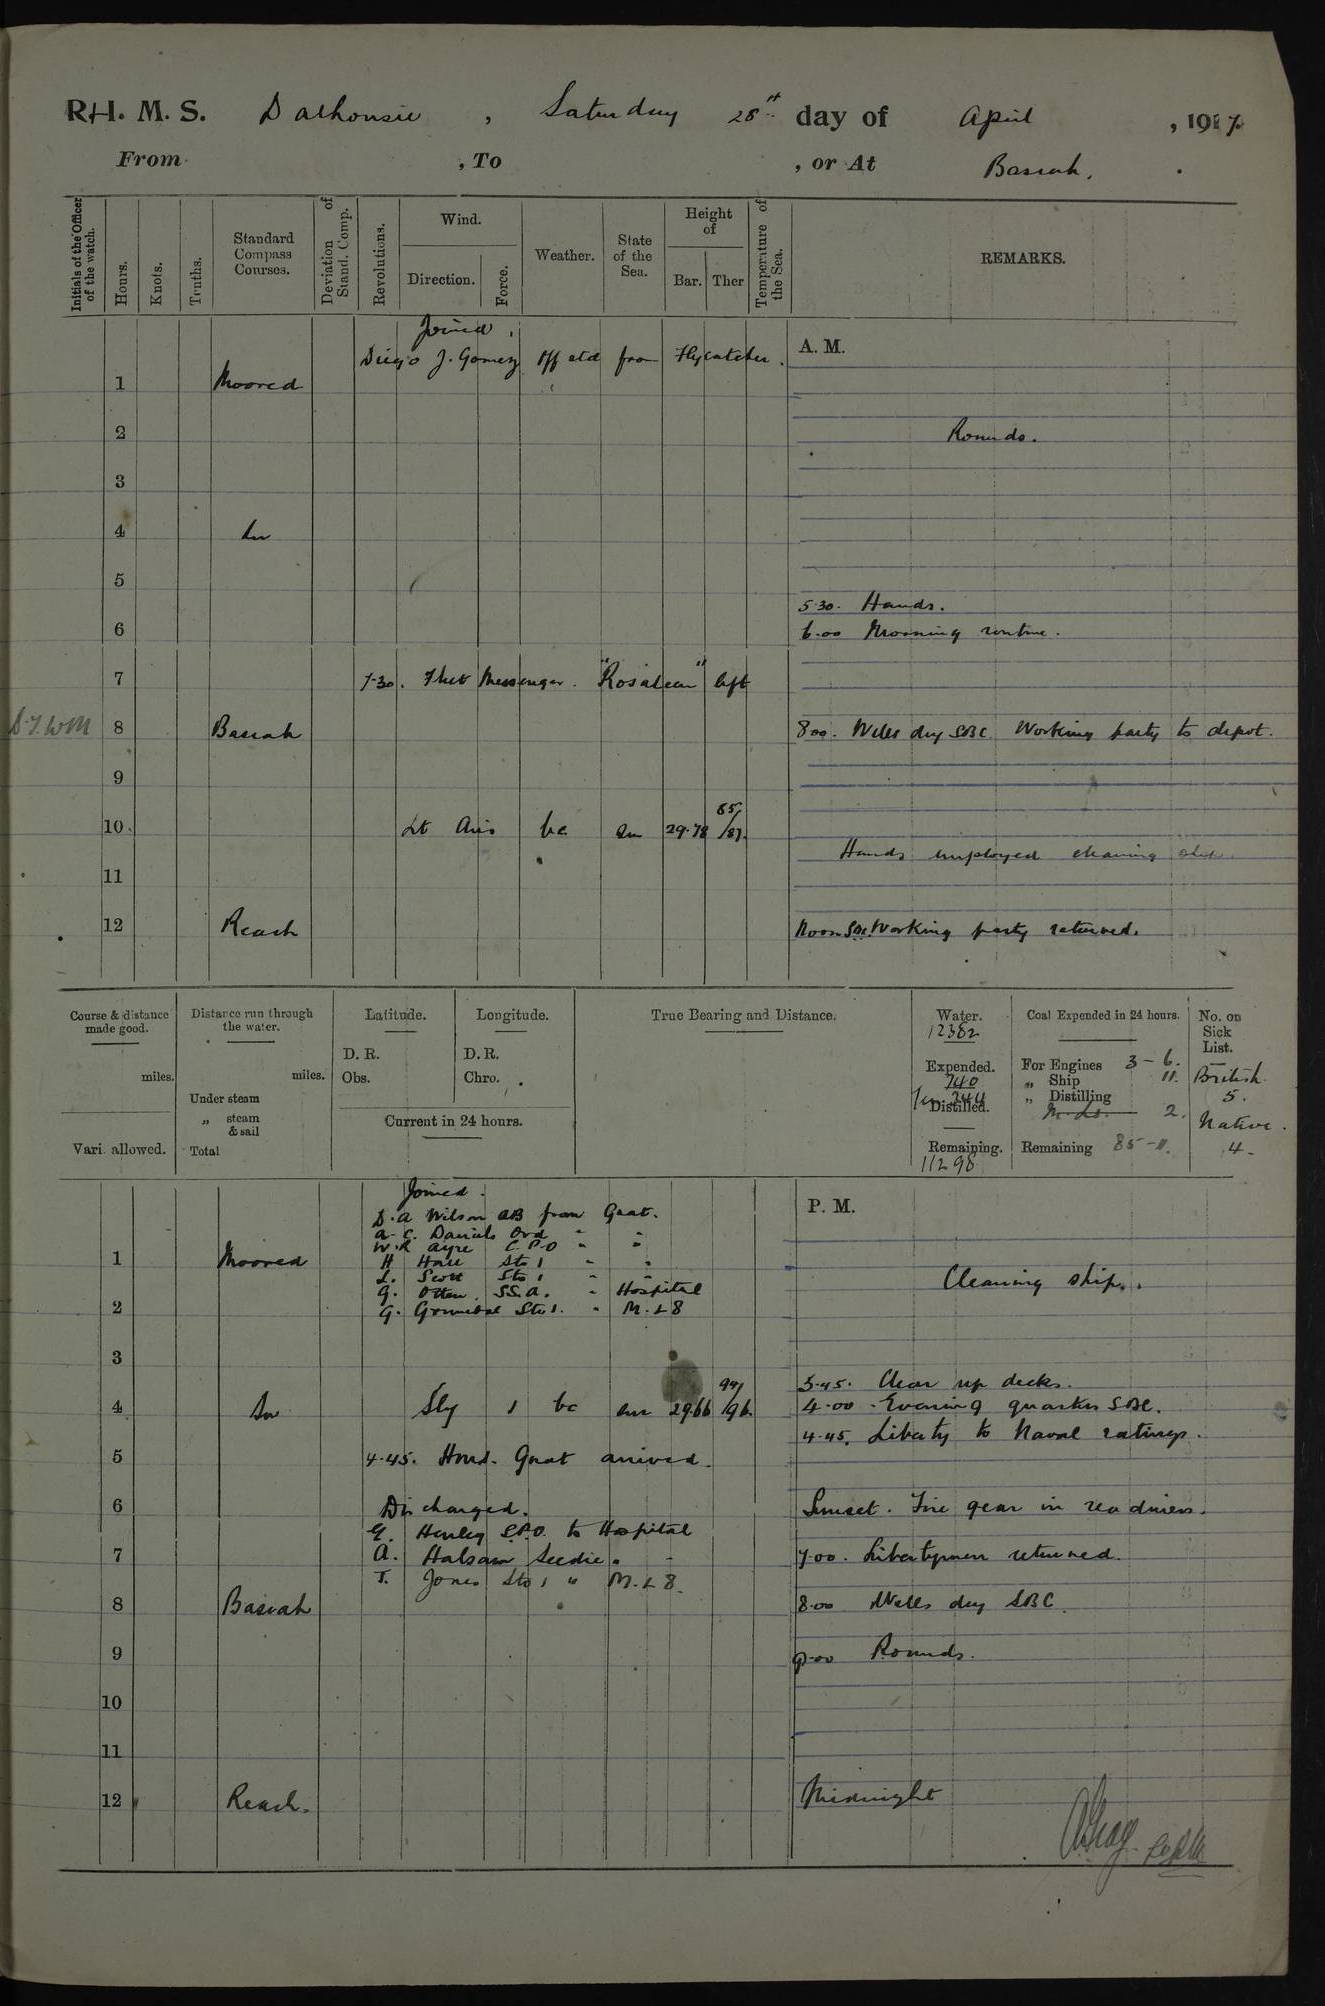 R.I.M.S. Dalhousie, Saturday 28th day of April, 1917.
From , To , or At Basrah.
Initials of the Officer of the watch.
Hours.
Knots.
Tenths.
Standard Compass Courses.
Deviation of Stand. Comp.
Revolutions.
Wind.
Direction.
Force.
Weather.
State of the Sea.
Height of
Bar. Ther
Temperature of the Sea.
REMARKS.
Joined.
A. M.
Diego J. Gomez Off std from Flycatcher.
1 Moored
2 Rounds.
3
4 In
5
5.30. Hands.
6 6.00 Morning routine.
7 7.30. Fleet Messenger. "Rosaleen" left
8 Basrah 8.00. Wells dry SBC Working party to depot.
9
10 Lt Airs bc sm 29.78 85/87.
Hands employed cleaning ship.
11
12 Reach Noon SBC. Working party returned.
Course & distance made good.
miles.
Vari. allowed.
Distance run through the water.
miles.
Under steam
„ steam & sail
Total
Latitude.
D. R.
Obs.
Longitude.
D. R.
Chro.
Current in 24 hours.
True Bearing and Distance.
Water.
12382
Expended.
740
344
Distilled.
Remaining.
11298
Coal Expended in 24 hours.
For Engines 3 - 6.
„ Ship 11.
„ Distilling
2.
Remaining 85 - 11.
No. on Sick List.
British
5.
Native.
4.
Joined.
P. M.
D.A Wilson AB from Gnat.
A.C. Daniels Ord " "
W.R Ayre C.P.O " "
1 Moored H Hall Sto 1 " "
L. Scott Sto 1 " "
Cleaning ship.
G. Otten. S.S.A. " Hospital
2 G. Sto 1. " M.L 8
3
3.45. Clear up decks.
4 In Sly 1 bc sm 29.66 94/96. 4.00 Evening quarters SBC.
4.45. Liberty to Naval ratings.
5 4.45. H.M.S. Gnat arrived.
6 Discharged. Sunset. Fire gear in readiness.
G. Henley S.P.O. to Hospital
7 A. Halsam Seedie " " 7.00. Libertymen returned.
T. Jones Sto 1 " M.L 8.
8 Basrah 8.00 Wells dry SBC.
9 9.00 Rounds.
10
11
12 Reach. Midnight